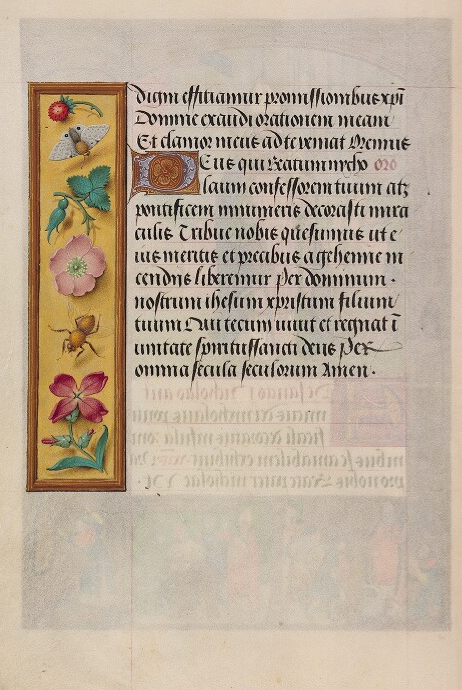 digni efficiamur promissionibus xpi
Domine exaudi orationem meam
Et clamor meus ad te veniat Oremus
Deus qui beatum nycho oro
laum confessorem tuum atq
pontificem innumeris decorasti mira
culis Tribue nobis quesumus ut e
ius meritis et precibus a gehenne in
cendiis liberemur per dominum.
nostrum ihesum xpristum filium
tuum Qui tecum uiuit et regnat i
unitate spiritussancti deus Per
omnia secula seculorum Amen.